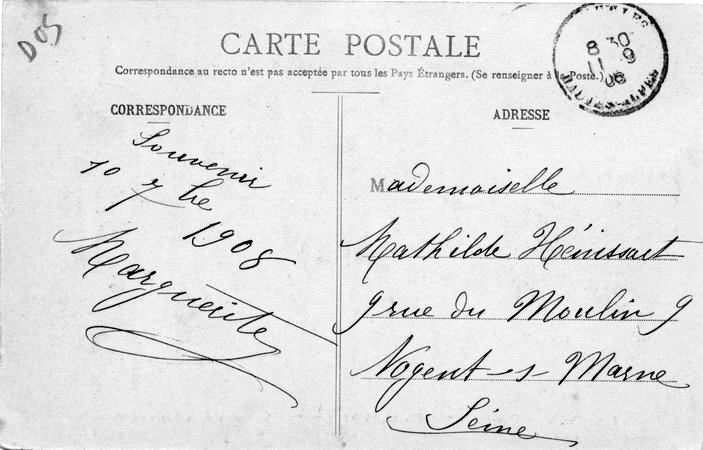 DOS
CARTE POSTALE
Correspondance au recto n'est pas acceptée par tous les Pays Étrangers. (Se renseigner à la Poste.)
CORRESPONDANCE
ADRESSE
8 30
11 9
08
HAUTES-ALPES
Souvenir
10 7bre
1908
Marguerite
Mademoiselle
Mathilde Hénissart
9 rue du Moulin 9
Nogent-s Marne
Seine